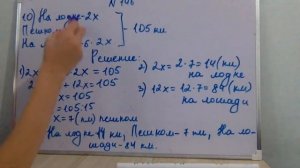 N 146
10) На лодке-2х
Пешком
На 6·2х
105 км
Решение:
1) 2х 2х = 105
12х = 105
х = 105
= 105:15
х = 7 (км) пешком
2) 2х = 2·7 = 14 (км)
на лодке
3) 12х = 12·7 = 84 (км)
на лошади
На лодке 14 км, Пешком - 7 км, На ло-
шади - 84 км.